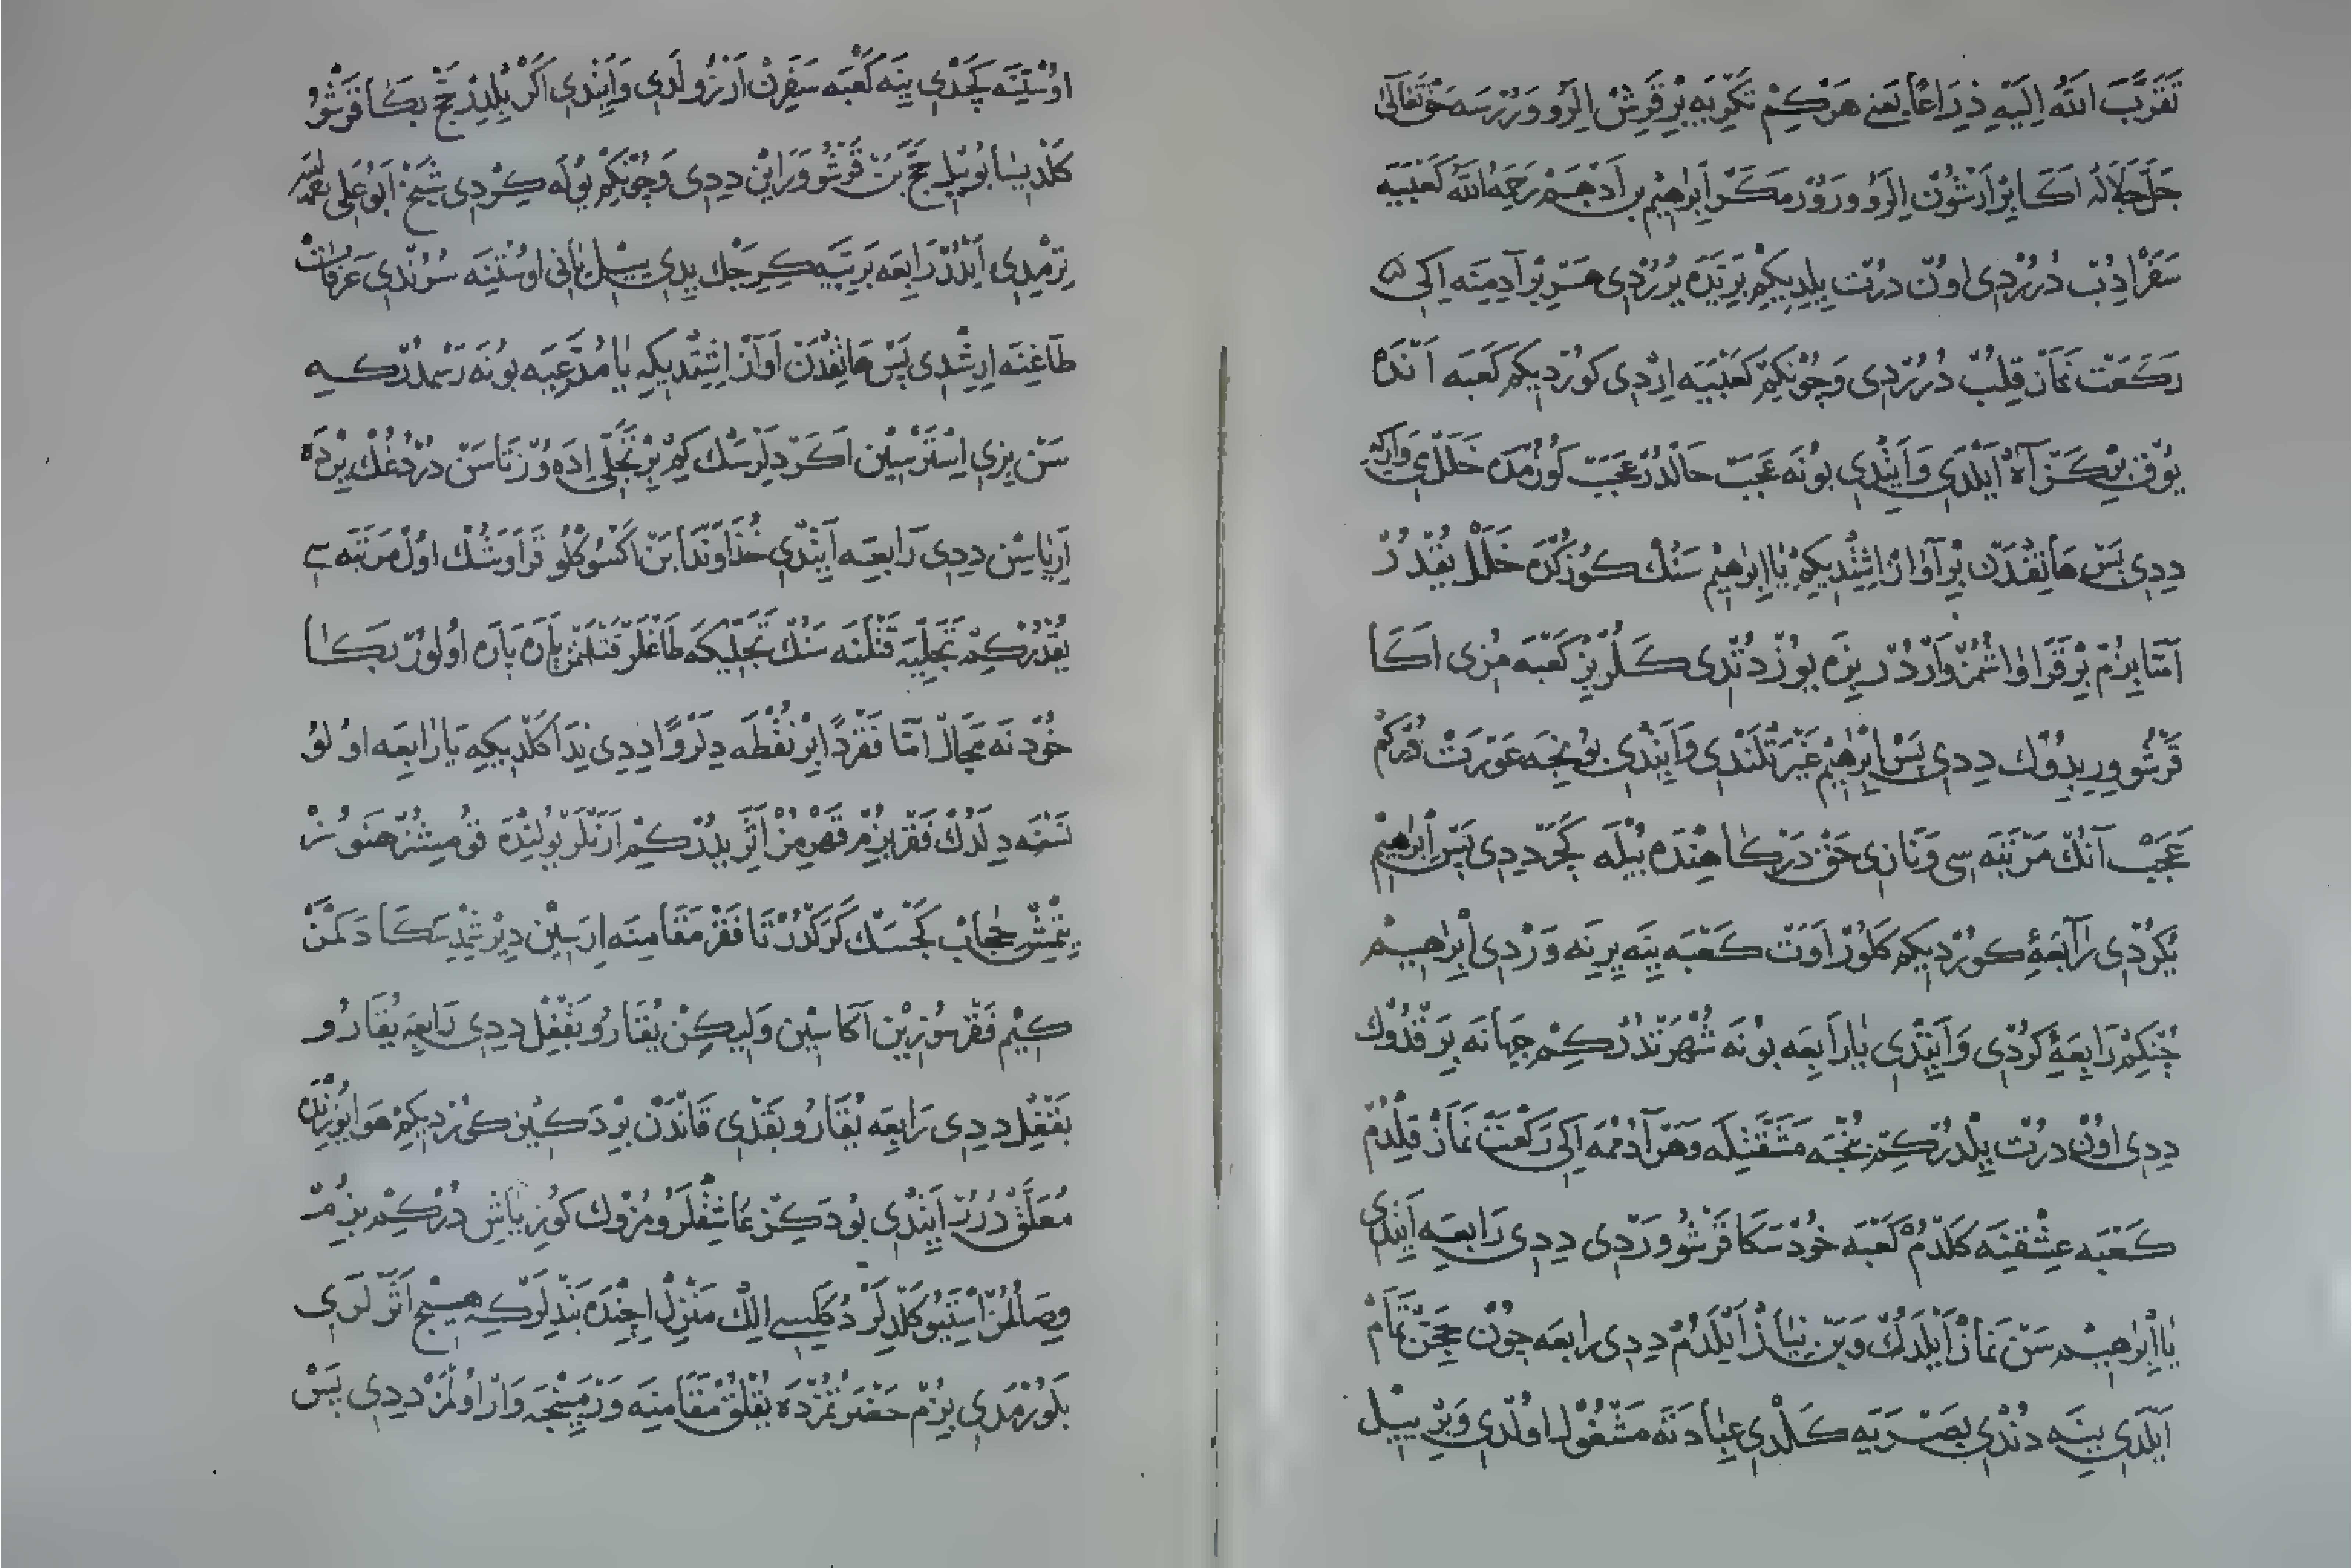 تَقَرَّبَ اللّٰهُ اِلَيْهِ ذِرَاعًا يَعْنِي هَرْ كِمْ تَكْرِيَه بِرْ قَرِشْ اِلَرُو وَرُرْسَه حَقْ تَعَالٰى
جَلَّ جَلَالُهُ اَكَا بِرْ اَرْشُونْ اِلَرُو وَرُورْ مَكَرْ اِبْرٰهِيمْ بِنْ اَدْهَمْ رَحِمَهُ اللّٰهُ كَعْبَيَه
سَفَرْ اِدُبْ دُرُرْدِي اوُنْ دُرْتْ يِلِدِيكِمْ بَرِيَّدَه يُرُرْدِي هَرْ بِرْ آدِمِنَه اِكِي
رَكَعَتْ نَمَازْ قِلُبْ دُرُرْدِي وَچُونْكِمْ كَعْبَيَه اِرْدِي كُورْدِيكِمْ كَعْبَه اَنْدَه
يُوقْ بِرْ كَزْ آهْ اَيْلَدِي وَاَيِتْدِي بُونَه عَجَبْ حَالْدُرْ عَجَبْ كُوزُمْدَه خَلَلْمِي وَارْكِه
دِدِي پَسْ هَاتِفْدَنْ بِرْ آوَازْ اِشِتْدِيكِمْ يَا اِبْرٰهِيمْ سَنُكْ كُوزُكْدَه خَلَلْ يُقْدُرْ
اَمَّا بِزُمْ بِرْ قَرَاوَاشُمُزْ وَارْدُرْ بِزَه يُوزْ دُتْدِي كَلُرْ بِزْ كَعْبَه مُزِي اَكَا
قَرْشُو وِرِيبِدُوكْ دِدِي پَسْ اِبْرٰهِيمْ غَيْرَتْلَنْدِي وَاَيِتْدِي بُو نِجَه عَوْرَتْ دُرْكِمْ
عَجَبْ اَنُكْ مَرْتَبَه سِي وَنَازِي حَقْ دَرْكَاهِنْدَه بُيْلَه كَچَرْ دِدِي پَسْ اِبْرٰهِيمْ
يُكُرْدِي رَابِعَهٔ كُورْدِيكِمْ كَلُورْ اَوَتْ كَعْبَه يِنَه يِرِنَه وَرْدِي اِبْرٰهِيمْ
چُنْكِمْ رَابِعَهٔ كُرْدِي وَاَيِتْدِي يَا رَابِعَه بُونَه شُهْرَتْدُرْ كِمْ جِهَانَه بَرَقْدُوكْ
دِدِي اوُنْ دُرْتْ يِلْدُرْ كِمْ نِجَه مَشَقَّتِلَه وَهَرْ آدُمُمَه اِكِي رَكْعَتْ نَمَازْ قِلْدُمْ
كَعْبَه عِشْقِنَه كَلْدُمْ كَعْبَه خُودْ سَكَا قَرْشُو وَرْدِي دِدِي رَابِعَه اَيِتْدِي
يَا اِبْرٰهِيمْ سَنْ نَمَازْ اَيْلَدُكْ وَبَنْ نِيَازْ اَيْلَدُمْ دِدِي رَابِعَه چُونْ حَجِّنْ تَمَامْ
اَيْلَدِي يِنَه دُنْدِي بَصْرَيَه كَلْدِي عِبَادَتَه مَشْغُولْ اوُلْدِي وَبِرْ يِيلْ
اوُسْتِنَه كَچَدِي يِنَه كَعْبَه سَفَرِنْ اَرْزُولَدِي وَاَيِتْدِي اَكَرْ بِلْدِرْ حَجْ بَكَا قَرْشُو
كَلْدِيسَا بُو يِيلْ حَجَّه بَنْ قَرْشُو وَرَايِنْ دِدِي وَچُونْكِمْ بُولَه كِرْدِي شَيْخْ اَبُو عَلِي
تِرْمِدِي اَيْدُرْ رَابِعَه بَرِيَّيَه كِرِجَكْ يِدِي يِيلْ يَانِي اوُسْتِنَه سُرُنْدِي عَرَفَاتْ
طَاغِنَه اِرِشْدِي پَسْ هَاتِفْدَنْ اَوَازْ اِشِتْدِيكِه يَا مُدَّعِيَه بُونَه رَسْمِدُرْكِه
سَنْ بِزِي اِسْتَرْسِيْنْ اَكَرْ دِلَرْسَكْ كِمْ بِرْ تَجَلِّي اِدَه وُزْ تَا سَنْ دُرْدُغُكْ يِرْدَه
اَرِيَاسِنْ دِدِي رَابِعَه اَيِتْدِي خُدَاوَنْدَا بَنْ اَكْسُوكْلُو قَرَاوَشُكْ اوُلْ مَرْتَبَه سِي
يُقْدُرْ كِمْ تَجَلِّيَه قَتْلَنَه سَنُكْ تَجَلِّيكَه طَاغْلَرْ قَتْلَنْمَزْ پَارَه پَارَه اوُلُورْ بَكَا
خُودْ نَه مَجَالْ اَمَّا فَقْرْدَا بِرْ نُقْطَه دِلَرْوَا دِدِي نِدَا كَلْدِيكِه يَا رَابِعَه اوُلُو
نَسْنَه دِلَدُكْ فَقْرْ بِزُمْ قَهْرِمُزْ اَثَرِيدُرْ كِمْ اَرَنْلَرْ يُولِنْدَه قُومِشُزْ هَنُوزْ
يِتْمِشْ حِجَابْ كَچْسَكْ كَرَكْدُرْ تَا فَقْرْ مَقَامِنَه اِرَسِيْنْ دِيْرْ شِمْدِ سَكَا دَكْمَزْ
كِيمْ فَقْرْ سُوزِيْنْ آكَاسِيْنْ وَلِيكِنْ يُقَارُو بَقْغِلْ دِدِي رَابِعَه يُقَارُو
بَقْغِلْ دِدِي رَابِعَه يُقَارُو بَقْدِي قَانْدَنْ بِرْ دَكِيزْ كُرْدِيكِمْ هَوَا يُوزِنْدَه
مُعَلَّقْ دُرُرْ اَيِتْدِي بُو دَكِزْ عَاشِقْلَرُومُزُوكْ كُوزِ يَاشِ دُرْ كِمْ بِزُمْ
وِصَالُمُزْ اِسْتَيُو كَلْدِلَرْدُ كَلِيسِي اِلْكْ مَنْزِلْ اِچِنْدَه بَتْدِلَرْكِه هِيچْ اَثَرْلَرِي
بَلُورْمَدِي بِزُمْ حَضْرَتُمُزْدَه يُقْلُقْ مَقَامِنَه وَرْمِيِنْجَه وَارْ اوُلْمَزْ دِدِي پَسْ